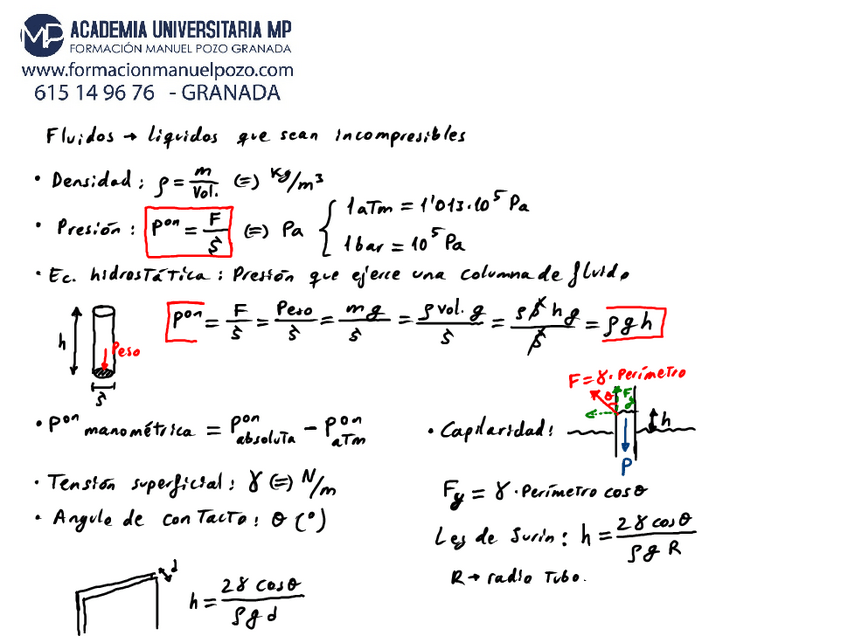 MP ACADEMIA UNIVERSITARIA MP
FORMACIÓN MANUEL POZO GRANADA
www.formacionmanuelpozo.com
615 14 96 76 - GRANADA
Fluidos → líquidos que sean incompresibles
• Densidad: ρ = m / Vol. (=) Kg/m³
• Presión: Pᵒⁿ = F / S (=) Pa { 1 aTm = 1'013·10⁵ Pa
1 bar = 10⁵ Pa
• Ec. hidrosTáTica: Presión que ejerce una columna de fluido
Pᵒⁿ = F / S = Peso / S = m g / S = ρ vol. g / S = ρ S h g / S = ρ g h
h
Peso
S
F = γ · Perímetro
θ
Fy
h
P
• Pᵒⁿ manométrica = Pᵒⁿ absoluTa − Pᵒⁿ aTm
• Capilaridad:
• Tensión superficial: γ (=) N/m
• Angulo de conTacTo: θ (°)
Fy = γ · Perímetro cosθ
Ley de Jurin: h = 2γ cosθ / ρ g R
R → radio Tubo.
d
h = 2γ cosθ / ρ g d